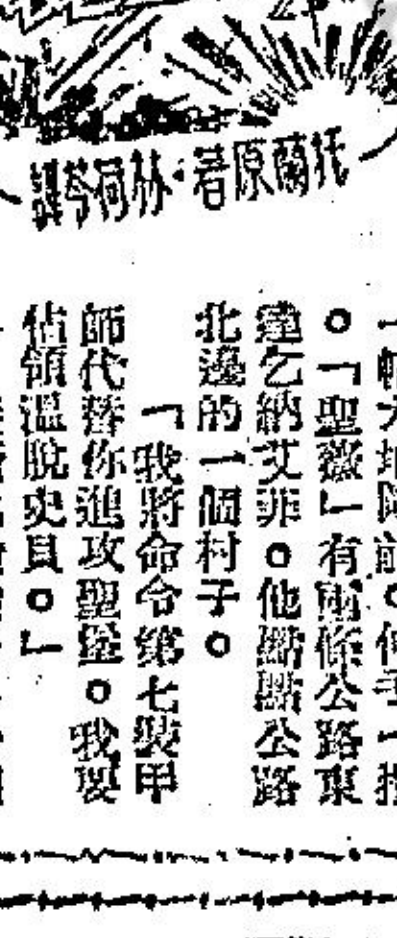 托蘭原著·林荷芩譯
。「聖薇」有兩條公路東
達乞納艾菲。他點點公路
北邊的一個村子。
「我將命令第七裝甲
師代替你進攻聖
。我要
佔領溫脫史員。」